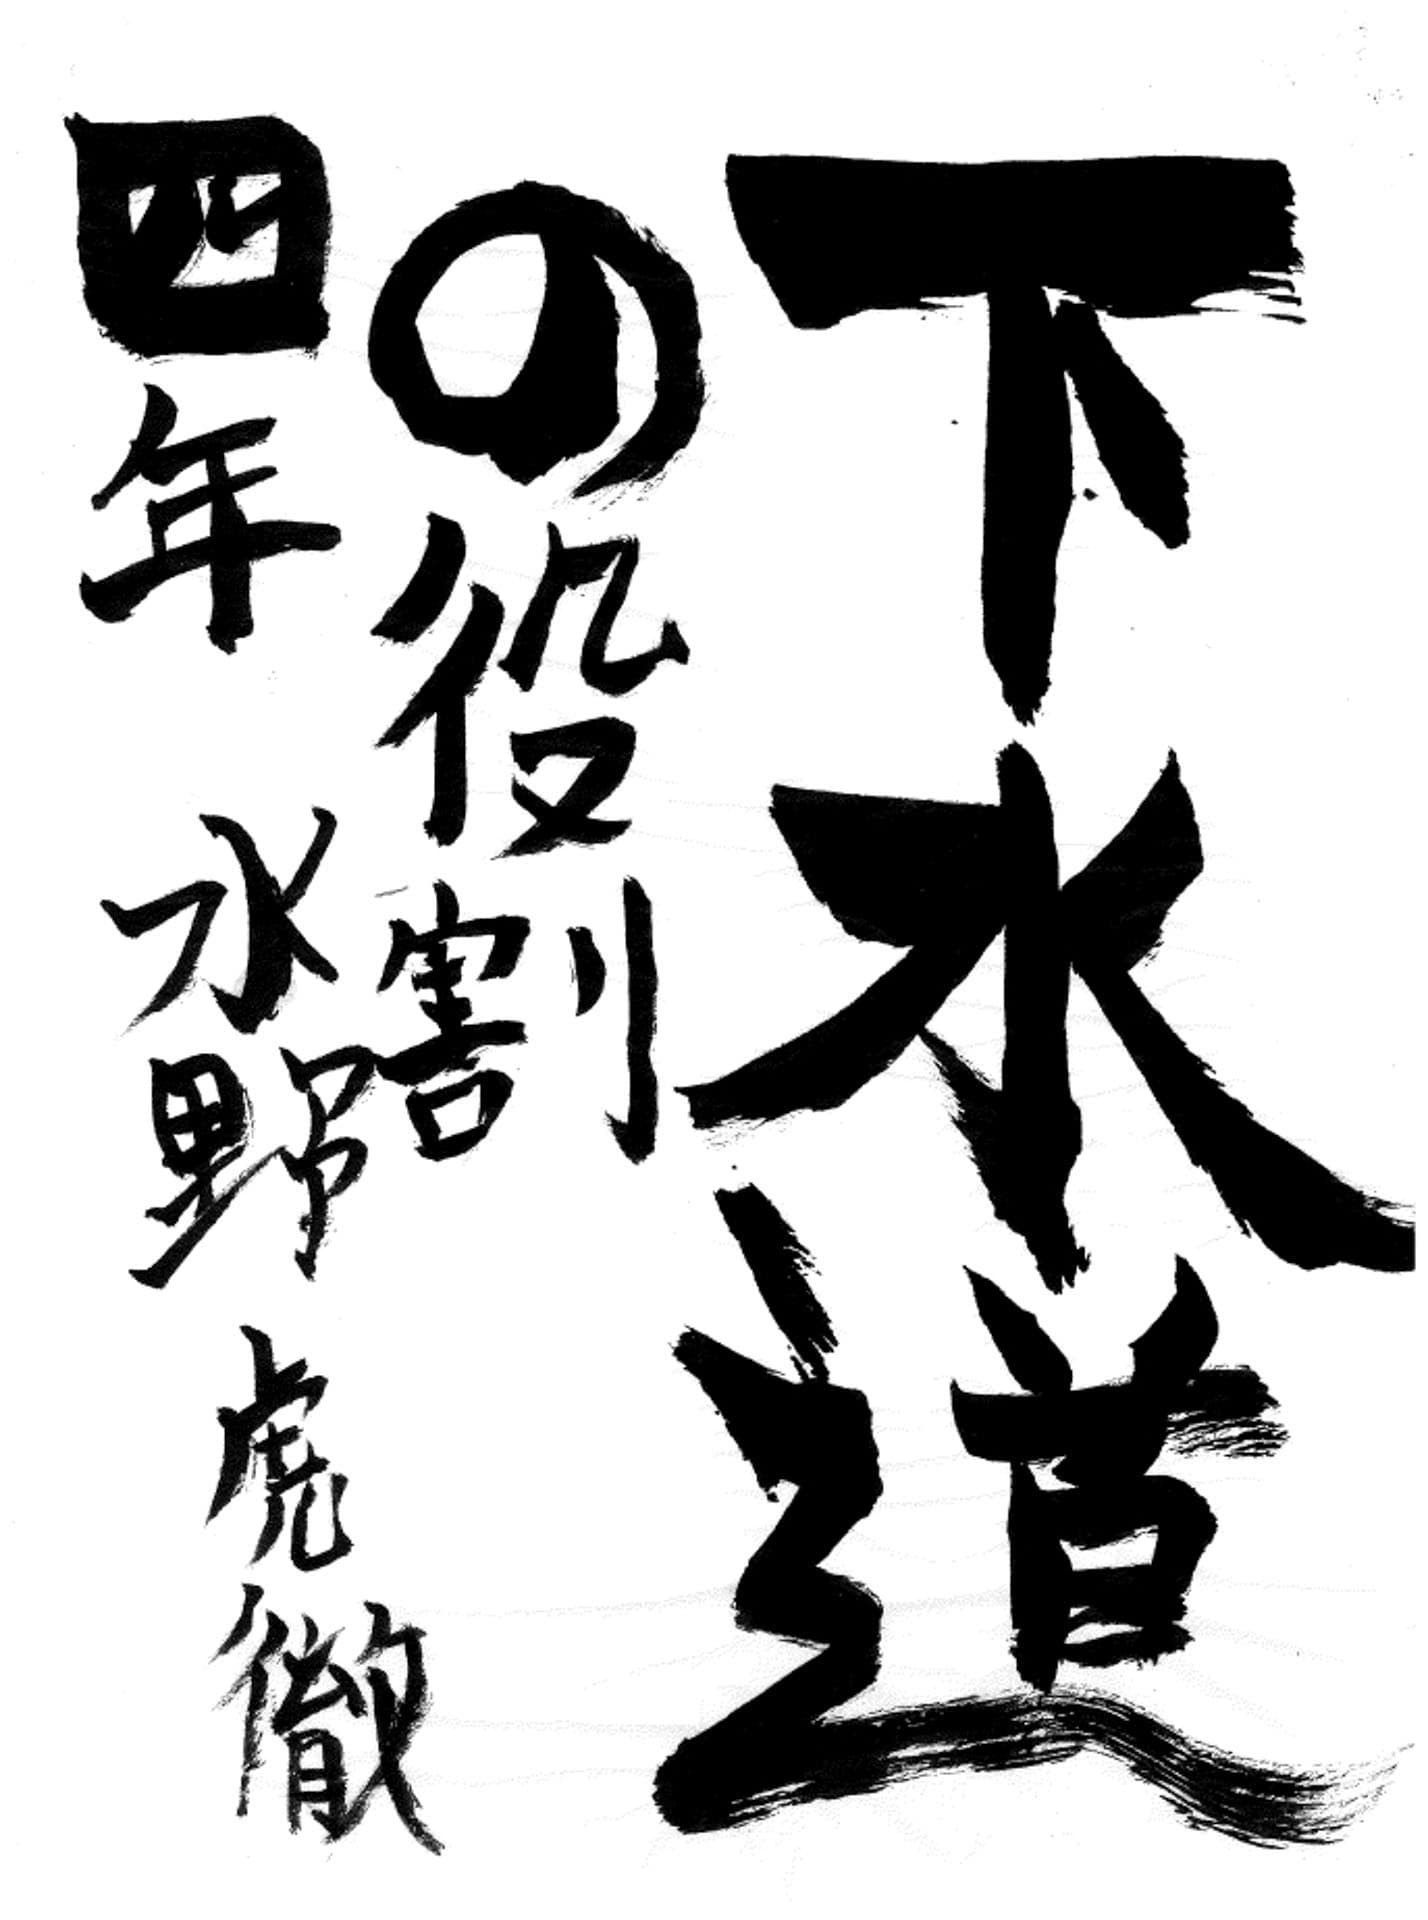 下水道
の役割
四年 水野 虎徹